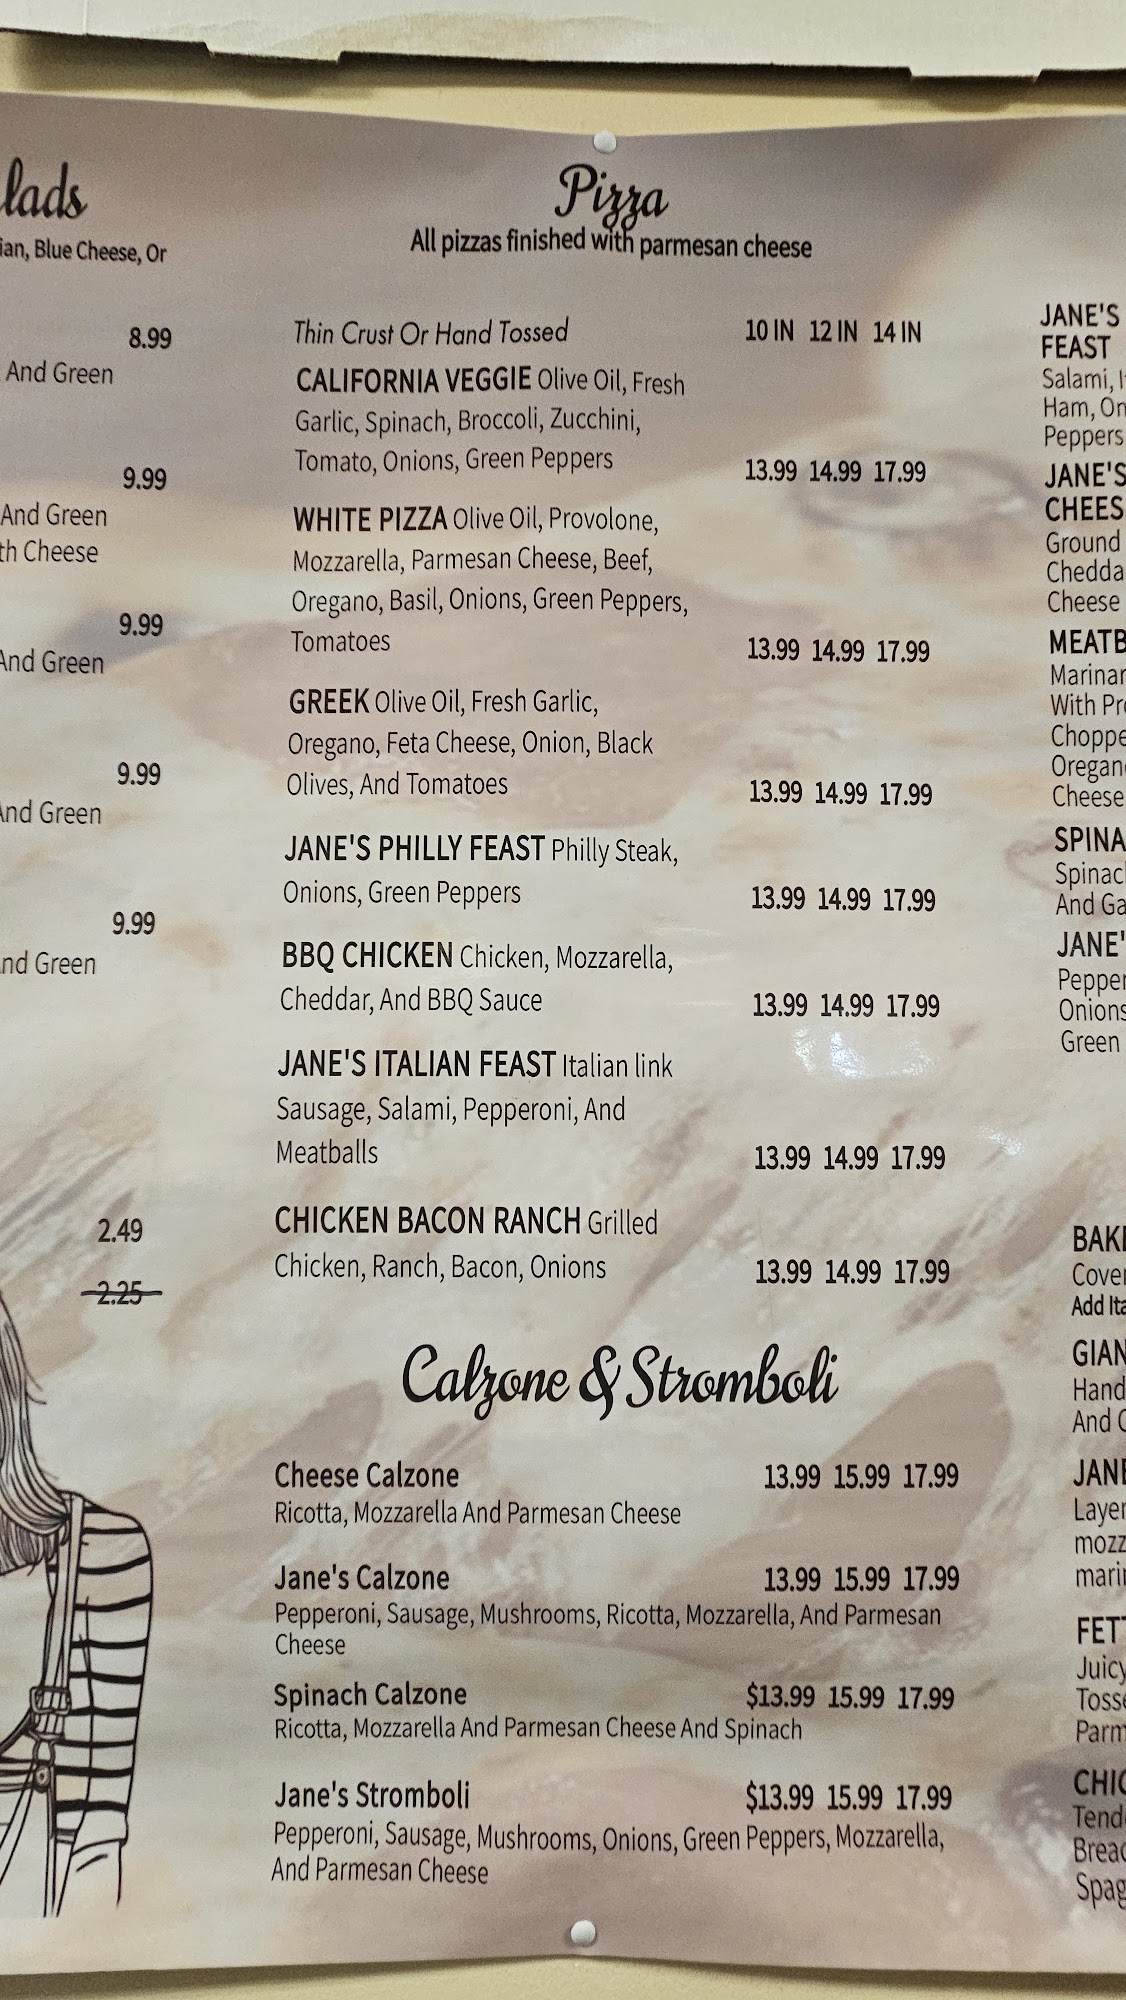 lads
Blue Cheese, Or
8.99
And Green
9.99
And Green
Cheese
9.99
And Green
9.99
And Green
9.99
Green
2.49
2.25
Pizza
All pizzas finished with parmesan cheese
Thin Crust Or Hand Tossed 10 IN 12 IN 14 IN
CALIFORNIA VEGGIE Olive Oil, Fresh
Garlic, Spinach, Broccoli, Zucchini,
Tomato, Onions, Green Peppers 13.99 14.99 17.99
WHITE PIZZA Olive Oil, Provolone,
Mozzarella, Parmesan Cheese, Beef,
Oregano, Basil, Onions, Green Peppers,
Tomatoes 13.99 14.99 17.99
GREEK Olive Oil, Fresh Garlic,
Oregano, Feta Cheese, Onion, Black
Olives, And Tomatoes 13.99 14.99 17.99
JANE'S PHILLY FEAST Philly Steak,
Onions, Green Peppers 13.99 14.99 17.99
BBQ CHICKEN Chicken, Mozzarella,
Cheddar, And BBQ Sauce 13.99 14.99 17.99
JANE'S ITALIAN FEAST Italian link
Sausage, Salami, Pepperoni, And
Meatballs 13.99 14.99 17.99
CHICKEN BACON RANCH Grilled
Chicken, Ranch, Bacon, Onions 13.99 14.99 17.99
Calzone & Stromboli
Cheese Calzone 13.99 15.99 17.99
Ricotta, Mozzarella And Parmesan Cheese
Jane's Calzone 13.99 15.99 17.99
Pepperoni, Sausage, Mushrooms, Ricotta, Mozzarella, And Parmesan
Cheese
Spinach Calzone $13.99 15.99 17.99
Ricotta, Mozzarella And Parmesan Cheese And Spinach
Jane's Stromboli $13.99 15.99 17.99
Pepperoni, Sausage, Mushrooms, Onions, Green Peppers, Mozzarella,
And Parmesan Cheese
JANE'S
FEAST
Salami,
Ham,
Peppers
JANE'S
CHEES
Ground
Chedda
Cheese
MEATB
Marinar
With
Choppe
Oregan
Cheese
SPINA
Spinac
And
JANE'
Pepper
Onions
Green
BAK
Cover
Add Ita
GIAN
Hand
And
JANE
Layer
mozz
marin
FET
Juicy
Tosse
Parm
CHIC
Tend
Bread
Spag